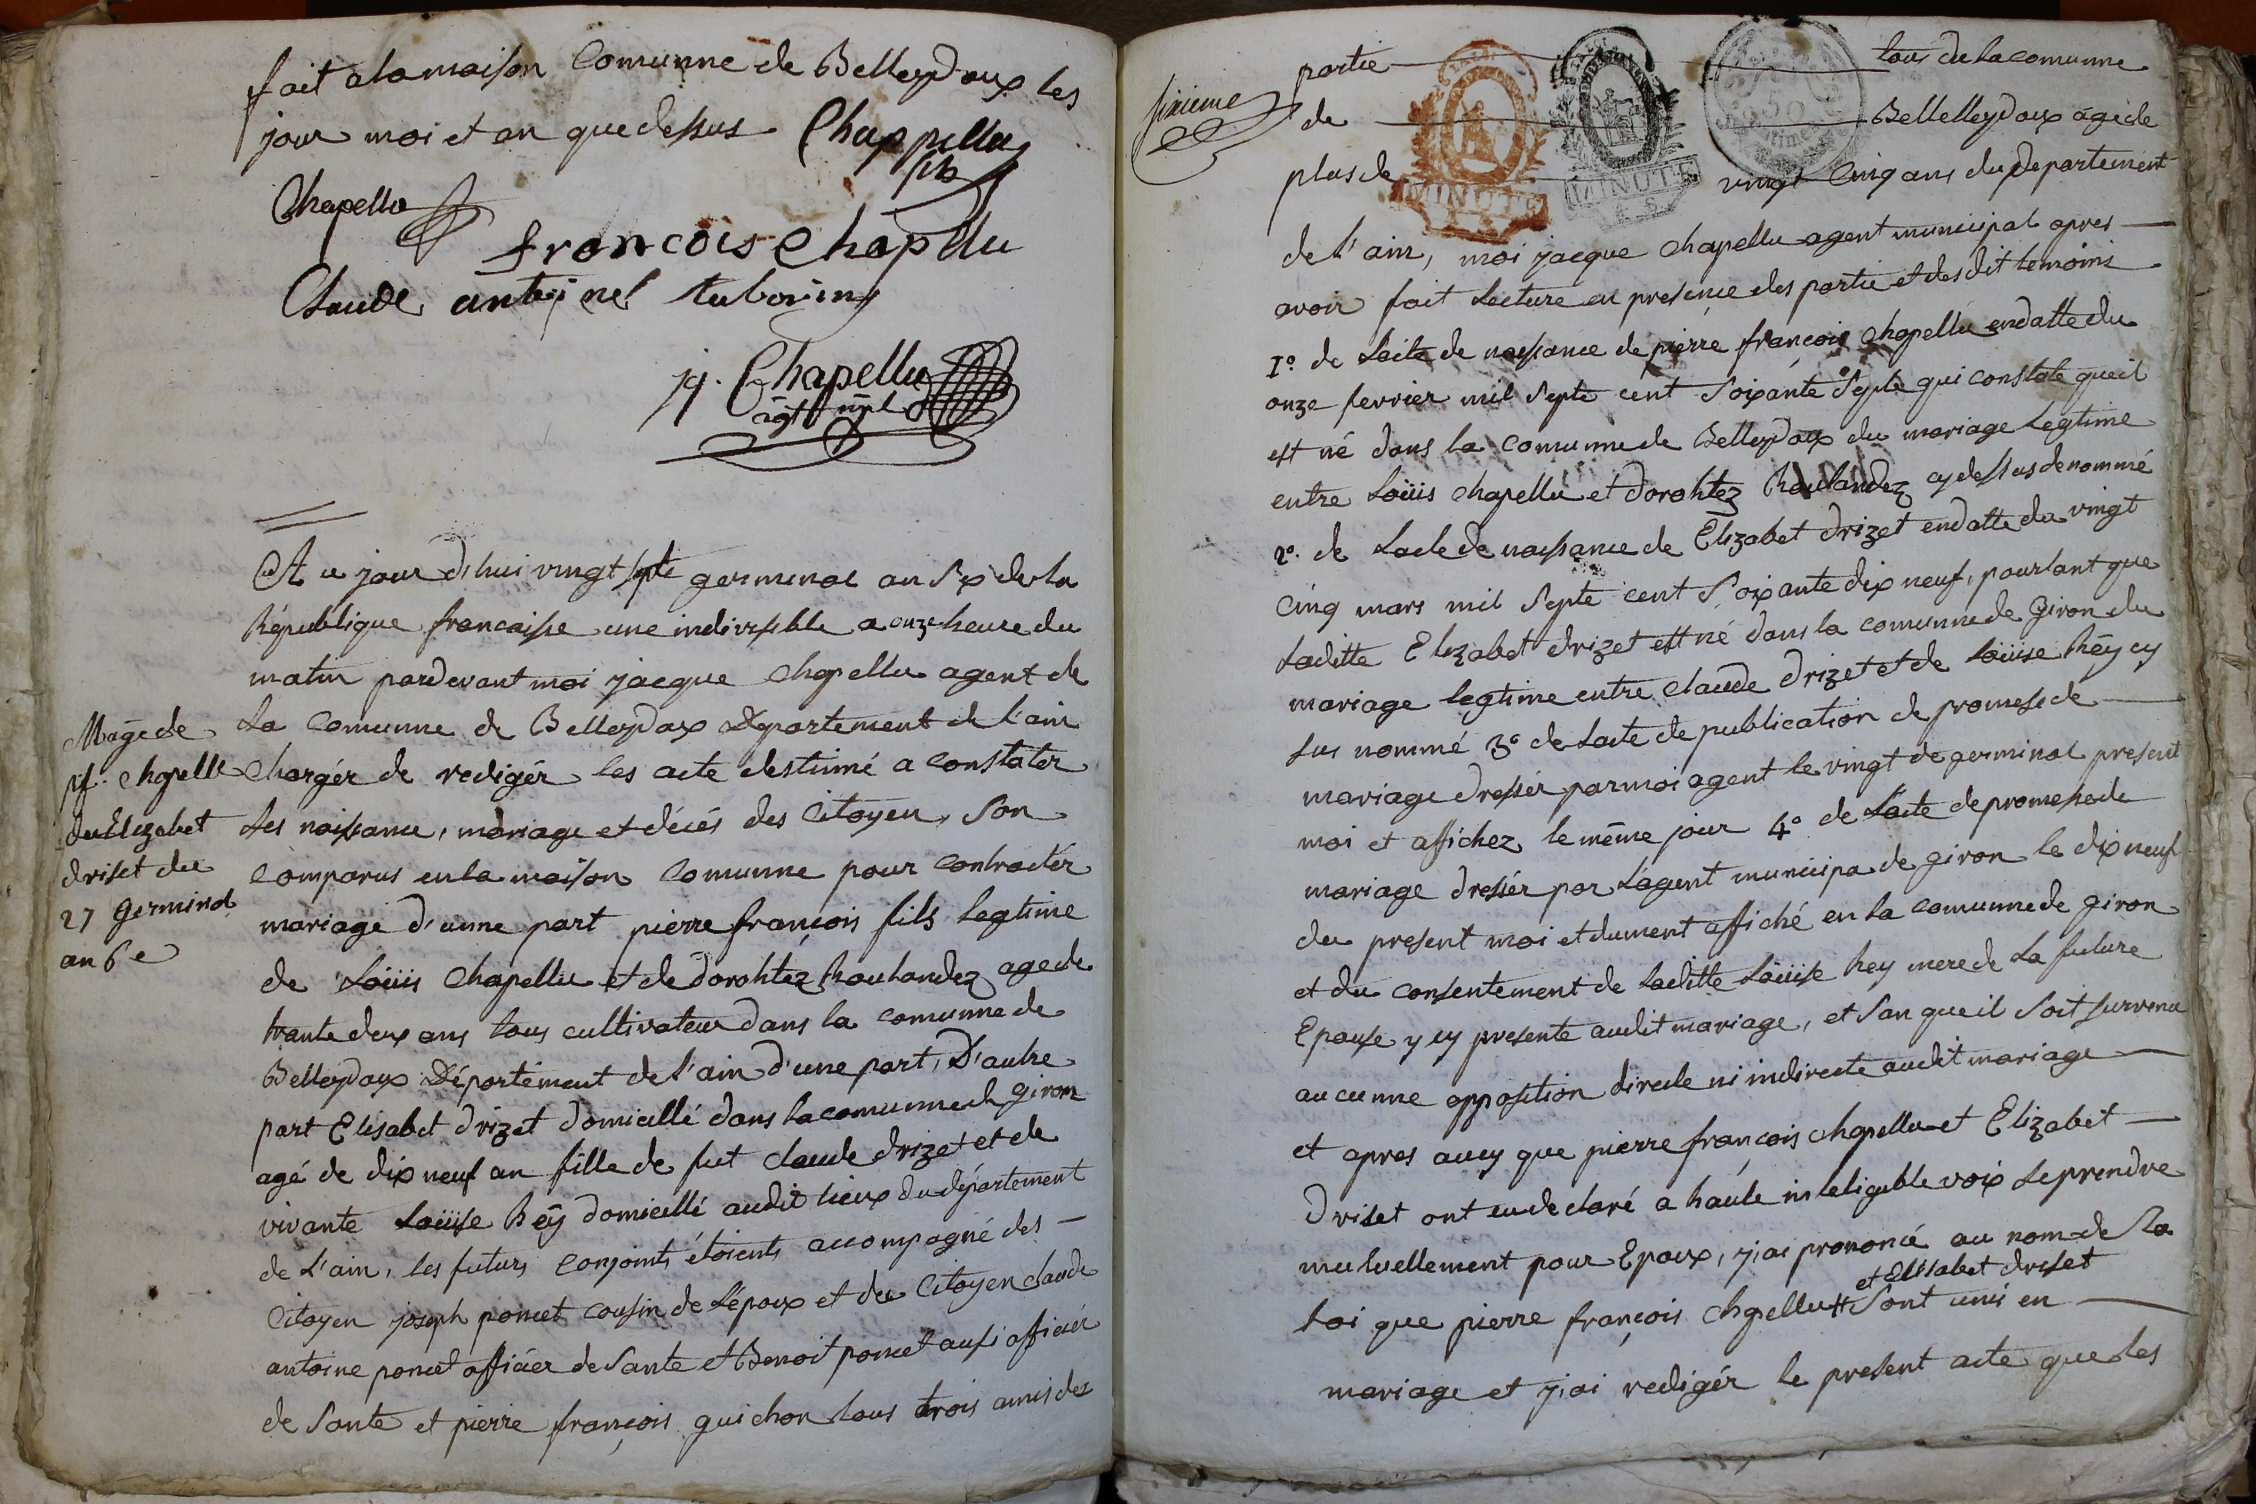 fait a la maison Comunne de Belleydoux les
jour moi et an que dessus Chappellu
Chapellu
francois Chapellu
Claude antoine tuborin
Jq. Chapellu
agt mpl
A ce jour d'hui vingt septe germinal an six de la
République francaisse une indivisible a onze heure du
matin pardevant moi jacque Chapellu agent de
La Comunne de Belleydoux Département de l'ain
Chargér de redigér les acte destinné a Constatér
Les naissance, mariage et décés des Citoyen, Son
Comparus en la maison Comunne pour Contractér
mariage d'unne part pierre françois fils legtime
de Loüis Chapellu et de dorohtez Roulandez age de
trante deux ans tous cultivateur dans la comunne de
Belleydoux Département de l'ain d'une part, D'autre
part Elisabet drizet domicillé dans la comunne de giron
agé de dix neuf an fille de fut claude drizet et de
vivante Loüise Rëÿ domicillé audit lieux du département
de L'ain, les futurs Conjoints étoients accompagné des
Citoyen joseph poncet cousin de L'époux et du Citoyen claude
antoine poncet officier de Sante et Benoit poncet ausi officiér
de Sante et pierre françois guichon tous trois amis des
Mage de
pf: Chapelle
du Elizabet
driset du
27 Germinal
an 6e
sixieme
partie tous de la comunne
de Bellelleydoux age de
plus de vingt Cinq ans du département
MINUTE
MINUTE
de l'ain, moi jacque Chapellu agent municipal apres
avoir fait Lecture en presence des partie et des dit temoins
1o. de Lacte de naissance de pierre françois Chapellu en datte du
onze fevrier mil Septe cent Soixante Septe qui constate que il
est né dans la Comunne de Belleydoux du mariage Legtime
entre Loüis Chapellu et dorohtez Roulandez cy dessus denommé
2o. de Lacte de naissance de Elizabet drizet en datte du vingt
Cinq mars mil Septe cent Soixante dix neuf, portant que
Laditte Elizabet drizet est né dans la comunne de Giron du
mariage legtime entre claude drizet et de Loüise Rëÿ cy
sus nommé 3o de Lacte de publication de promesse de
mariage dressér par moi agent le vingt de germinal present
moi et affichez le même jour 4o de Lacte de promesse de
mariage dressér par L'agent municipa de giron le dix neuf
du present moi et dument affiché en la comunne de giron
et du consentement de Laditte Loüise Rey mere de La future
Epouse y cy presente audit mariage, et San que il Soit survenu
aucunne opposition directe ni indirecte audit mariage
et apres aucy que pierre francois Chapellu et Elizabet
Driset ont eu declaré a haúte inteligeble voix Se prendre
mutuellement pour Epoux, j'ai prononcé au nom de La
et Elisabet driset
Loi que pierre françois Chapellu # Sont unis en
mariage et j'ai redigér le present acte que les